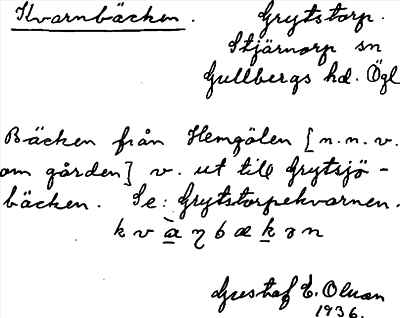 Kvarnbäcken. Grytstorp.
Stjärnorp sn
Gullbergs hd. Ögl
Bäcken från Hemgölen [n.n.v.
om gården] v. ut till Grytsjö-
bäcken. Se: Grytstorpekvarnen.
kvàɳbækən
Gustaf E. Olsson
1936.